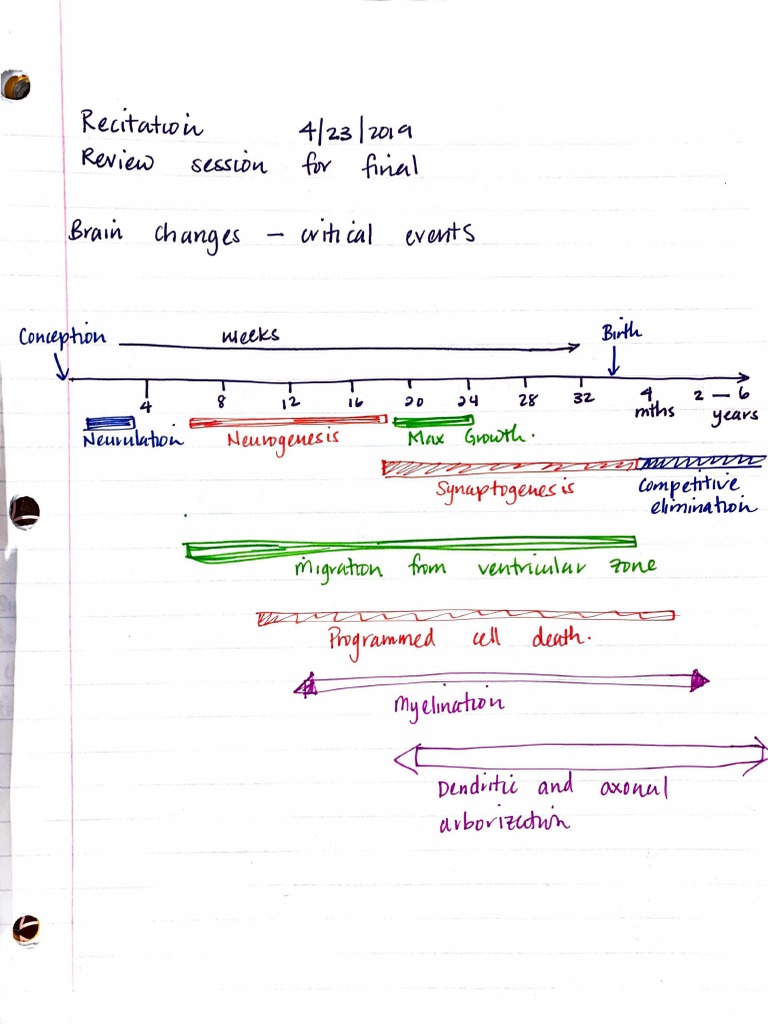 Recitation 4/23/2019
Review session for final
Brain changes – critical events
Conception weeks Birth
4 8 12 16 20 24 28 32 4 mths 2 – 6 years
Neurulation Neurogenesis Max Growth.
Synaptogenesis Competitive elimination
Migration from ventricular zone
Programmed cell death.
Myelination
Dendritic and axonal
arborization